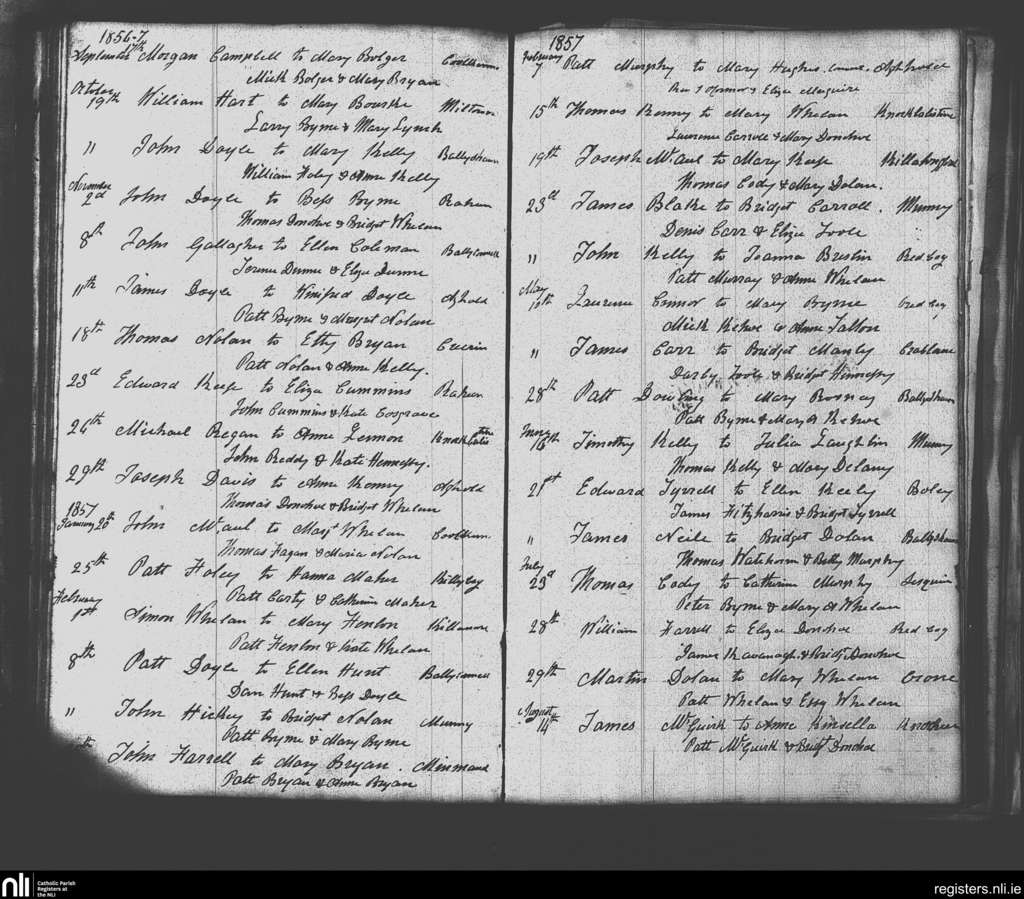 1856-7
September 17th Morgan Campbell to Mary Bolger
Mick Bolger & Mary Bryan
October 19th William Hart to Mary Bourke
Larry Byrne & Mary Lynch
" John Doyle to Mary Kelly
William Foley & Anne Kelly
November 2d John Doyle to Bess Byrne Rakeen
Thomas Donohoe & Bridget Whelan
8th John Gallagher to Ellen Coleman
Terence Dunne & Eliza Dunne
11th James Doyle to Winifred Doyle Aghold
Patt Byrne & Margt Nolan
18th Thomas Nolan to Etty Bryan
Patt Nolan & Anne Kelly.
23d Edward Keefe to Eliza Cummins Rakeen
John Cummins & Kate Cosgrave
24th Michael Regan to Anne Lennon
John Reddy & Kate Hennessy.
29th Joseph Davis to Anne Aghold
Thomas Donohoe & Bridget Whelan
1857
January 20th John to Margt Whelan
Thomas Fagan & Maria Nolan
25th Patt Foley to Hanna Maher
Patt Carty & Catherine Maher
February 1st Simon Whelan to Mary Henlon
Patt Henlon & Kate Whelan
8th Patt Doyle to Ellen Hunt
Dan Hunt & Bess Doyle
" John Hickey to Bridget Nolan Munny
Patt Byrne & Mary Byrne
John Farrell to Mary Bryan.
Patt Bryan & Anne Bryan
1857
February 7 Patt Murphy to Mary Hughes
& Eliza Maguire
15th Thomas to Mary Whelan
Laurence Carroll & Mary Donohoe
19th Joseph to Mary Keefe
Thomas Cody & Mary Dolan.
23d James Blake to Bridget Carroll. Munny
Denis Carr & Eliza Toole
" John Kelly to Joanna Breslin Red bog
Patt Murray & Anne Whelan
May 10th Laurence Connor to Mary Byrne Red bog
Mick Kehoe & Anne Tallon
" James Carr to Bridget Manly
Darby Toole & Bridget Hennessy
28th Patt Dowling to Mary Rooney
Patt Byrne & Mary A Kehoe
16th Timothy Kelly to Julia Laughlin Munny
Thomas Kelly & Mary Delany
21st Edward Tyrrell to Ellen Keely Boley
James Fitzharris & Bridget Tyrrell
" James Neile to Bridget Dolan
Thomas & Betty Murphy
July 23d Thomas Cody to Catherine Murphy
Peter Byrne & Mary A Whelan
28th William Farrell to Eliza Donohoe Red bog
James Kavanagh & Bridgt Donohoe
29th Martin Dolan to Mary Whelan Crone
Patt Whelan & Essy Whelan
August 14th James McGuirk to Anne Kinsella
Patt McGuirk & Bridgt Donohoe
nli
Catholic Parish
Registers at
the NLI
registers.nli.ie